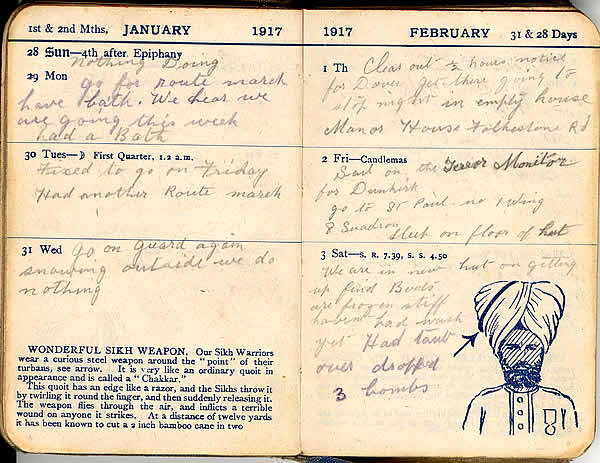 1st & 2nd Mths. JANUARY 1917
28 Sun—4th after Epiphany
Nothing Doing
29 Mon go for route march
have bath. We hear we
are going this week
had a Bath
30 Tues—☽ First Quarter, 1.2 a.m.
Fixed to go on Friday
Had another Route march
31 Wed Go on Guard again
snowing outside we do
nothing
WONDERFUL SIKH WEAPON. Our Sikh Warriors
wear a curious steel weapon around the "point" of their
turbans, see arrow. It is very like an ordinary quoit in
appearance and is called a "Chakkar."
This quoit has an edge like a razor, and the Sikhs throw it
by twirling it round the finger, and then suddenly releasing it.
The weapon flies through the air, and inflicts a terrible
wound on anyone it strikes. At a distance of twelve yards
it has been known to cut a 2 inch bamboo cane in two
1917 FEBRUARY 31 & 28 Days
1 Th Clear out ½ hours notice
for Dover get there going to
stop night in empty house
Manor House Folkestone Rd
2 Fri—Candlemas
Sail on the Terror Monitor
for Dunkirk
go to St Paul. no 1 Wing
8 Squadron
Slept on floor of hut
3 Sat—S. R. 7.39, S. S. 4.50
We are in new hut on getting
up find Boots
are frozen stiff
havent had wash
yet Had taub
over dropped
3 bombs